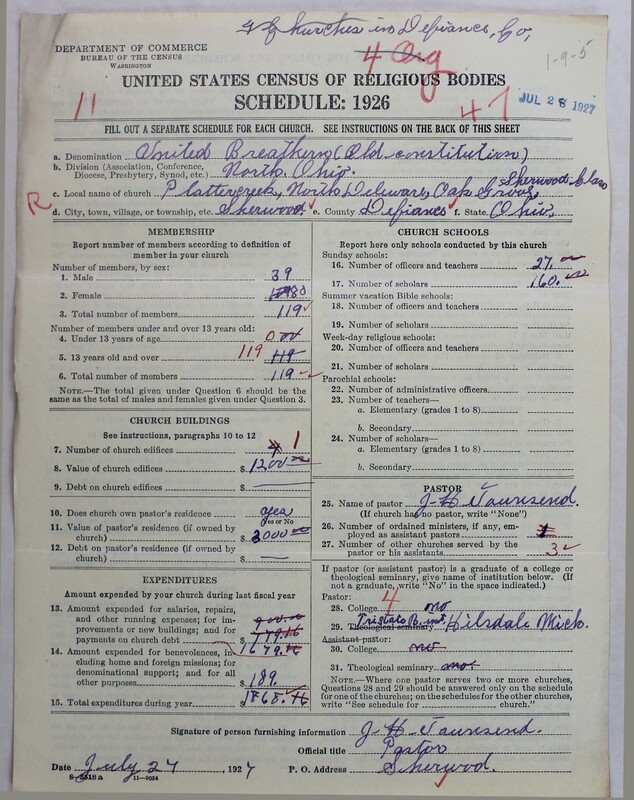 4 Churches in Defiance, Co,
4 Org
1-9-5
DEPARTMENT OF COMMERCE
BUREAU OF THE CENSUS
WASHINGTON
UNITED STATES CENSUS OF RELIGIOUS BODIES
SCHEDULE: 1926
11
47
JUL 28 1927
FILL OUT A SEPARATE SCHEDULE FOR EACH CHURCH. SEE INSTRUCTIONS ON THE BACK OF THIS SHEET
a. Denomination United Breathern (Old constitution)
b. Division (Association, Conference, Diocese, Presbytery, Synod, etc.) North. Ohio.
Sherwood Class
c. Local name of church Plattercreek, North Deleware, Oak Grove,
R
d. City, town, village, or township, etc. Sherwood. e. County Defiance f. State. Ohio,
MEMBERSHIP
Report number of members according to definition of
member in your church
Number of members, by sex:
1. Male 39
2. Female 80
3. Total number of members 119
Number of members under and over 13 years old:
4. Under 13 years of age 0
5. 13 years old and over 119 119
6. Total number of members 119
NOTE.—The total given under Question 6 should be
same as the total of males and females given under Question 3.
CHURCH BUILDINGS
See instructions, paragraphs 10 to 12
7. Number of church edifices 4 1
8. Value of church edifices $ 1200 00
9. Debt on church edifices $ —
10. Does church own pastor's residence yea
Yes or No
11. Value of pastor's residence (if owned by
church) $ 3000 00
12. Debt on pastor's residence (if owned by
church) $ —
EXPENDITURES
Amount expended by your church during last fiscal year
13. Amount expended for salaries, repairs,
and other running expenses; for im-
provements or new buildings; and for
payments on church debt $ 1679.16
14. Amount expended for benevolences, in-
cluding home and foreign missions; for
denominational support; and for all
other purposes $ 189.
15. Total expenditures during year $ 1868.16
CHURCH SCHOOLS
Report here only schools conducted by this church
Sunday schools:
16. Number of officers and teachers 27.
17. Number of scholars 160.
Summer vacation Bible schools:
18. Number of officers and teachers
19. Number of scholars
Week-day religious schools:
20. Number of officers and teachers
21. Number of scholars
Parochial schools:
22. Number of administrative officers
23. Number of teachers—
a. Elementary (grades 1 to 8)
b. Secondary
24. Number of scholars—
a. Elementary (grades 1 to 8)
b. Secondary
PASTOR
25. Name of pastor J. H Townsend.
(If church has no pastor, write "None")
26. Number of ordained ministers, if any, em-
ployed as assistant pastors
27. Number of other churches served by the
pastor or his assistants 3
If pastor (or assistant pastor) is a graduate of a college or
theological seminary, give name of institution below. (If
not a graduate, write "No" in the space indicated.)
Pastor: 4
28. College no
Tristate B. inst.
29. Theological seminary Hilsdale Mich.
Assistant pastor:
30. College no
31. Theological seminary no.
NOTE.—Where one pastor serves two or more churches,
Questions 28 and 29 should be answered only on the schedule
for one of the churches; on the schedules for the other churches,
write "See schedule for church."
Signature of person furnishing information J-H-Townsend.
Official title Pastor
Date July 27, 1927 P. O. Address Sherwood.
8—5518 a 11—9054